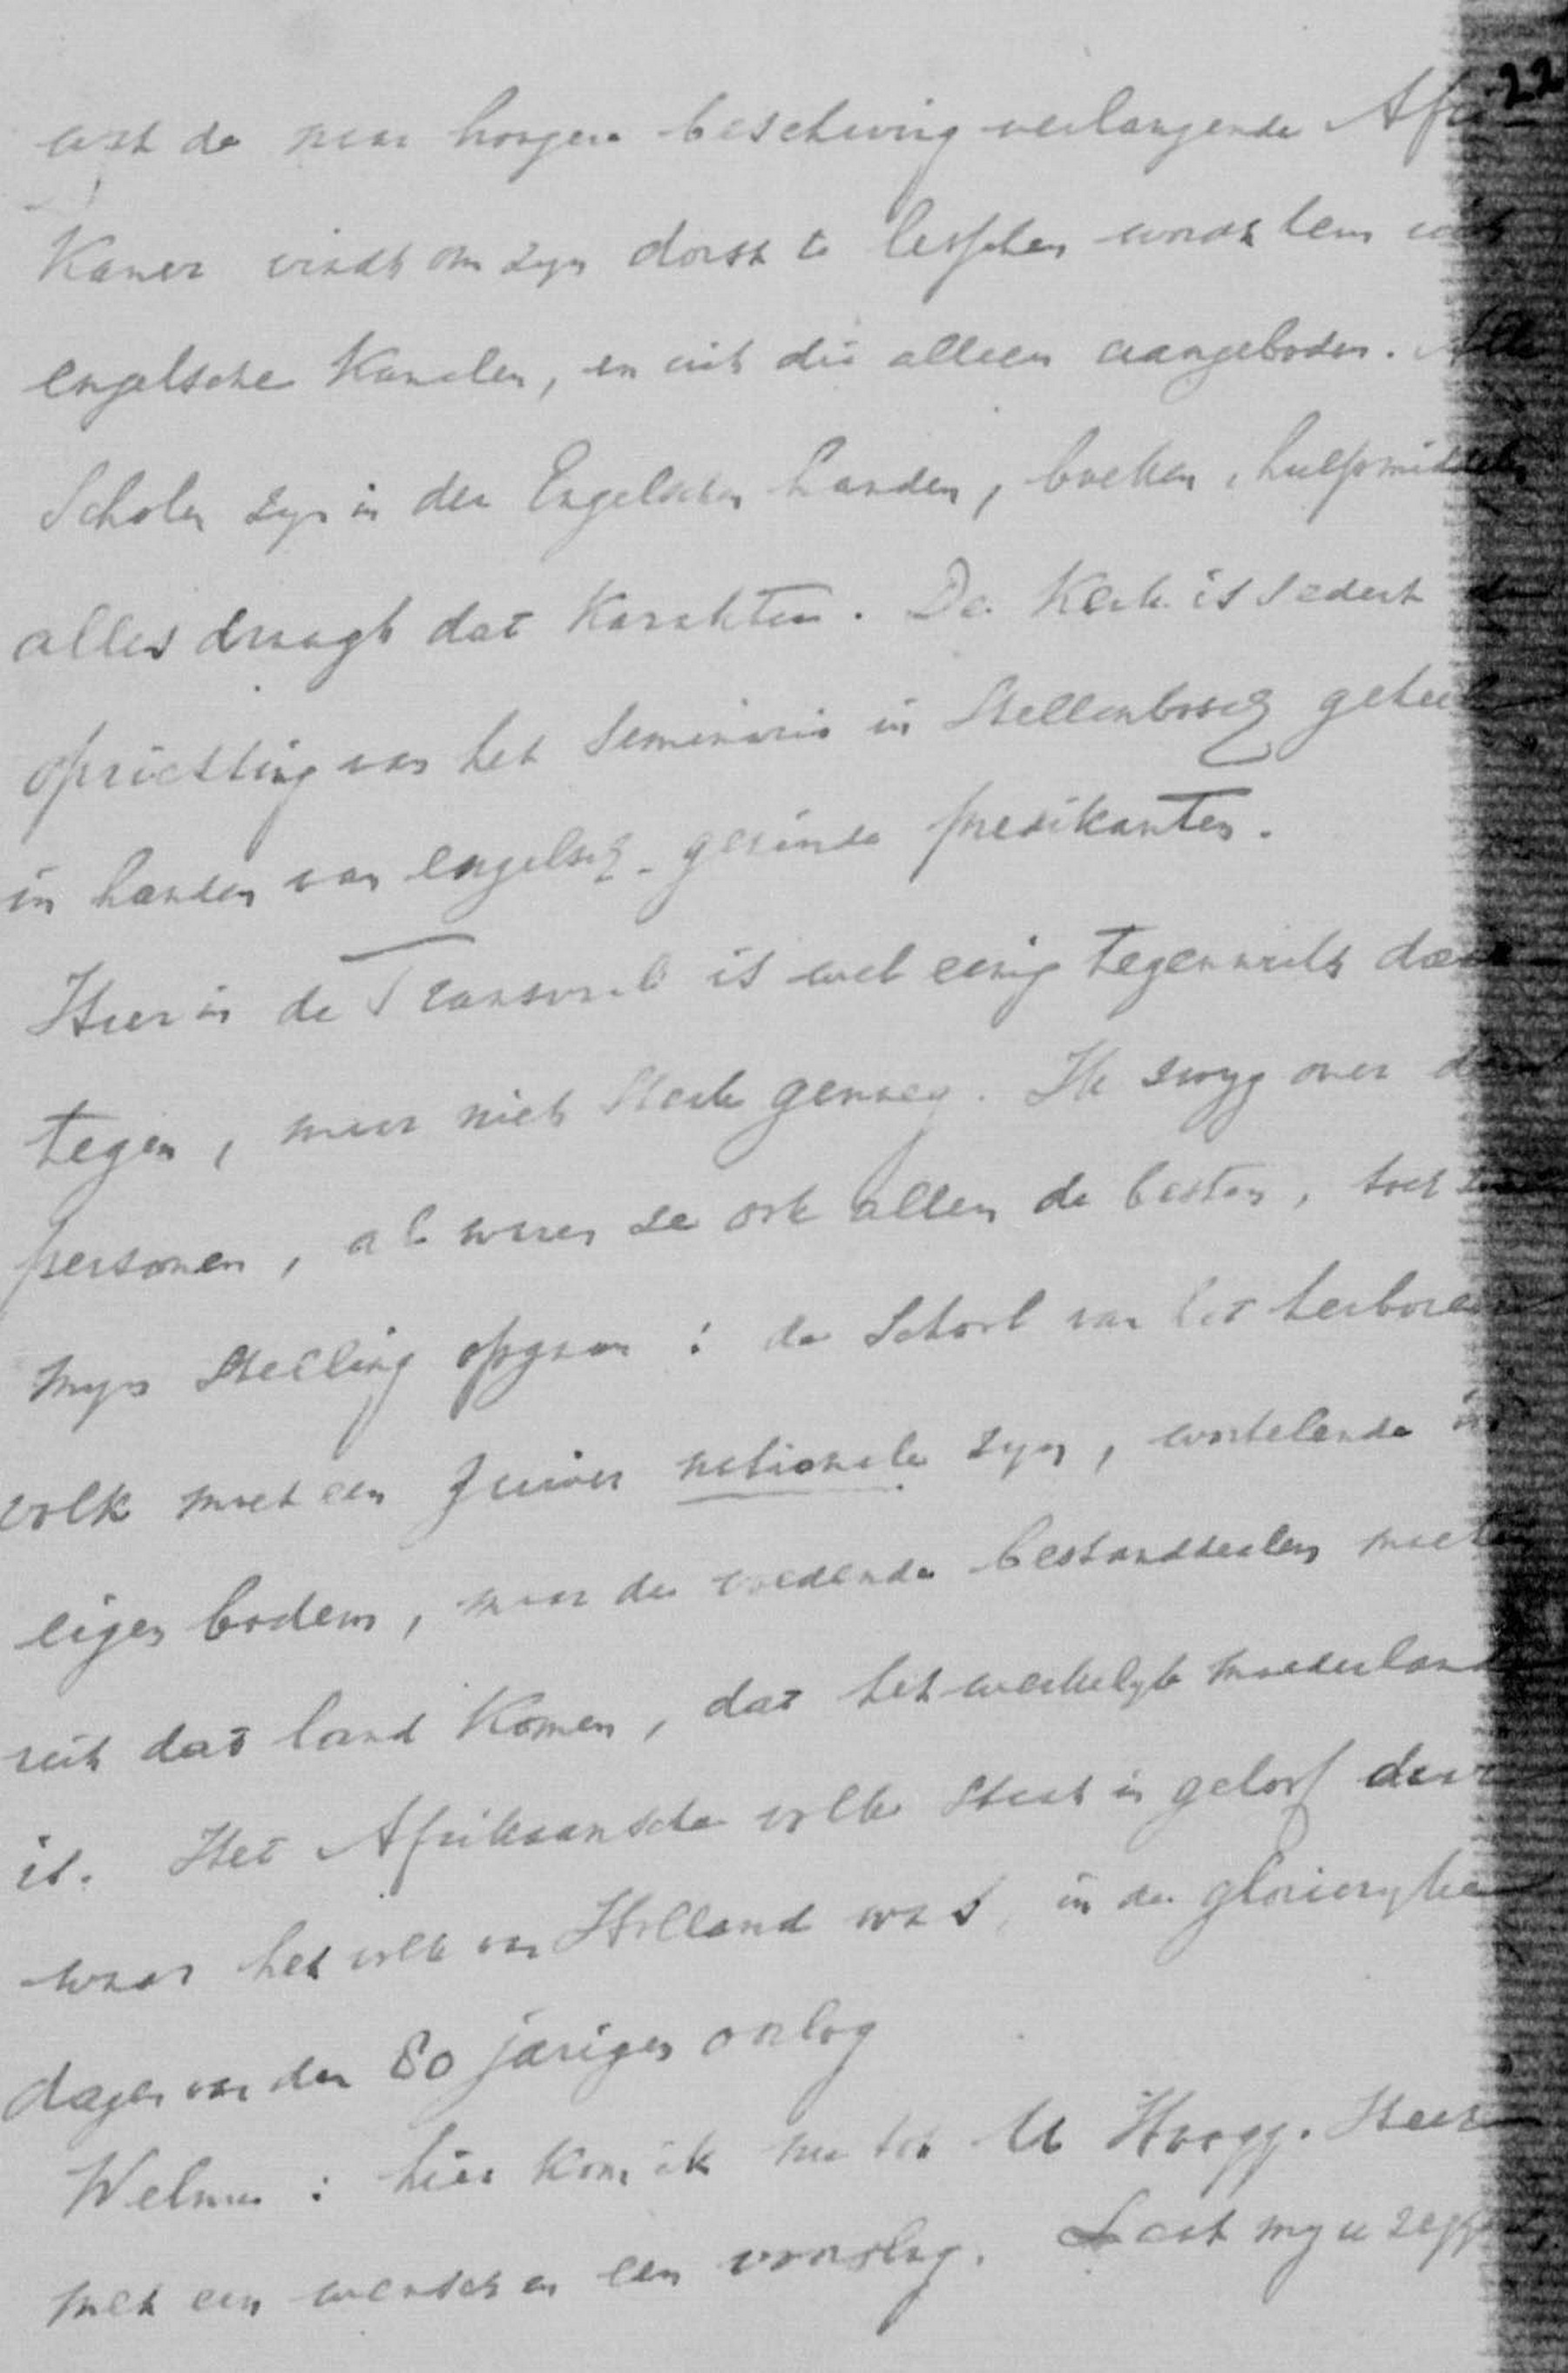 22
wat de naar hoogere beschaving verlangende Afri
kaner vindt om zyn dorst te lesschen wordt hem uit
engelsche Kanalen, en uit die alleen aangeboden. Alle
Scholen zyn in der Engelschen handen, boeken, hulpmiddelen
alles draagt dat Karakter. De Kerk is sedert de
oprichting van het Seminarie in Stellenbosch geheel
in handen van engelsch-gezinde predikanten.
Hier in de Transvaal is wel eenig tegenwicht daar
tegen, maar niet sterk genoeg. Ik zwyg over de
personen, al waren ze ook allen de besten, toch zou
myn stelling opgaan: de School van het herboren
volk moet een zuiver nationale zyn, wortelende in
eigen bodem, maar de voedende bestanddeelen moeten
uit dat land Komen, dat het werkelyk moederland
is. Het Afrikaansche volk staat in geloof daar
waar het volk van Holland was, in de glorieryke
dagen van den 80 jarigen oorlog
Welnu: hier Kom ik nu tot U Hoogg. Heer
met een wensch en een voorslag. Laat my u zeggen,